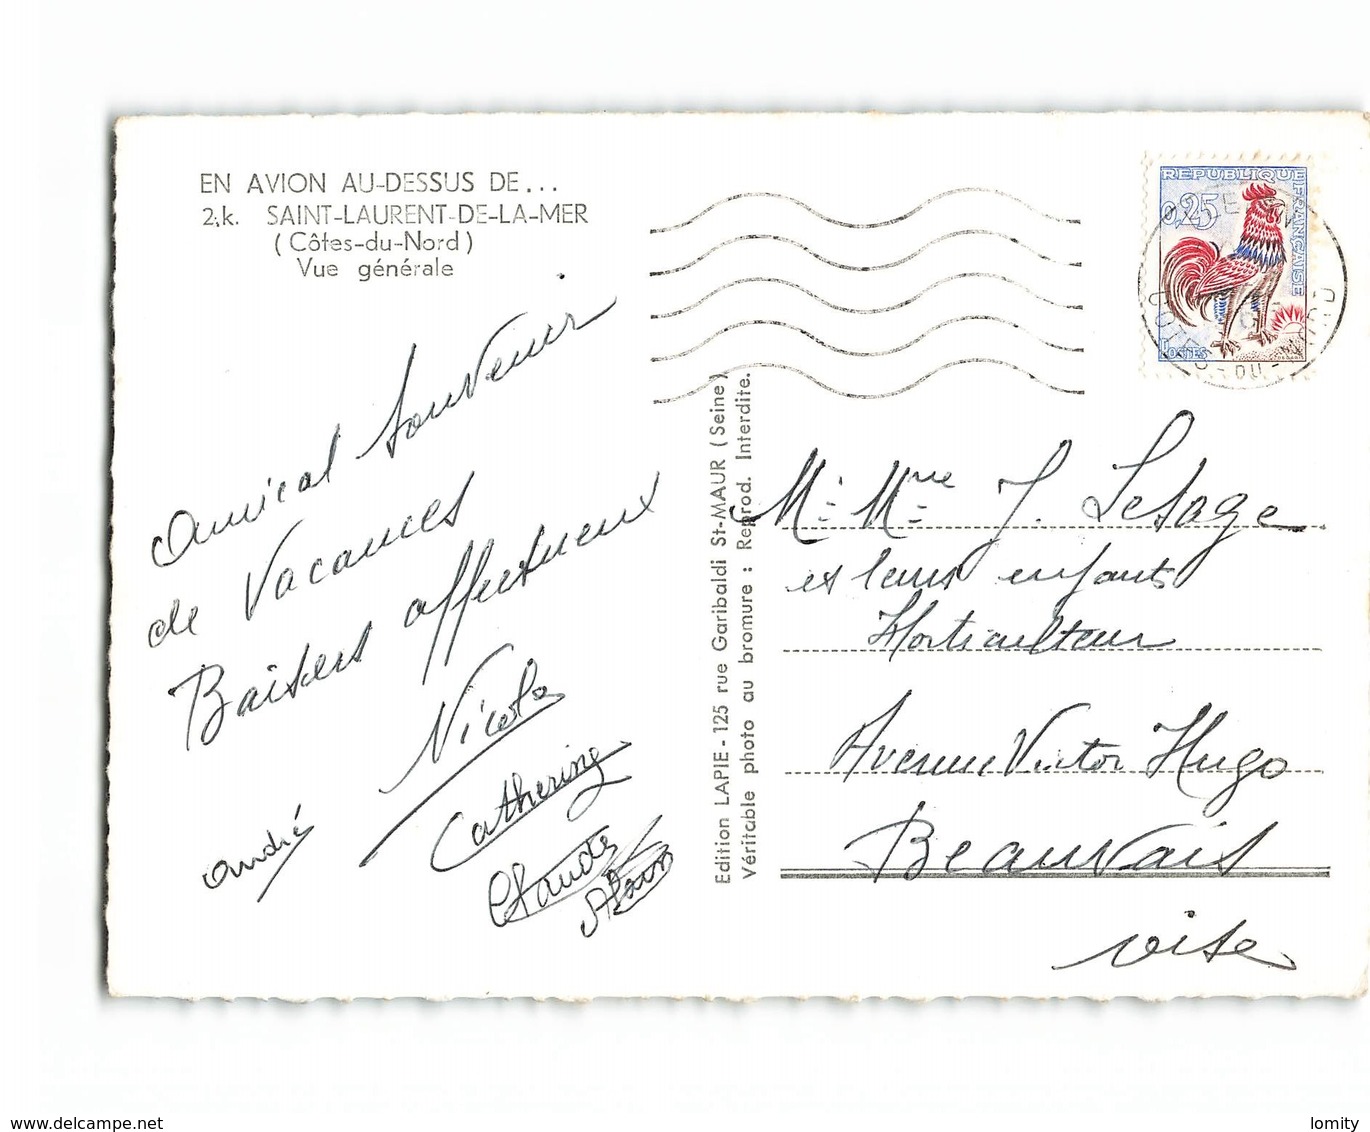 EN AVION AU-DESSUS DE...
2.k. SAINT-LAURENT-DE-LA-MER
(Côtes-du-Nord)
Vue générale
Amical Souvenir
de Vacances
Baisers affectueux
Nicole
Catherine
Claude
Alain
André
Edition LAPIE - 125 rue Garibaldi St-MAUR (Seine)
Véritable photo au bromure : Reprod. Interdite.
REPUBLIQUE
FRANÇAISE
0,25
POSTES
COTES-DU-NORD
M. Mme J. Lesage
et leurs enfants
Horticulteur
Avenue Victor Hugo
Beauvais
oise
www.delcampe.net
lomity